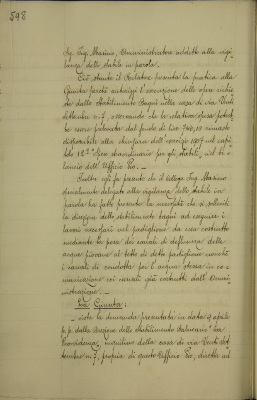 598
Sig. Ing. Massino, Amministratore addetto alla vigi-
lanza dello stabile in parola.
Ciò stante il Relatore presenta la pratica alla
Giunta perchè autorizzi l'esecuzione delle opere richie-
ste dallo Stabilimento Bagni nella casa di via Venti
Settembre n. 7, osservando che la relativa spesa potreb-
be venir prelevata dal fondo di lire 740,15 rimasto
disponibile alla chiusura dell'esercizio 1907 sul capi-
tolo 12° "Spese straordinarie per gli stabili" del bi-
lancio dell'Ufficio Pio.
Inoltre egli fa presente che il collega Ing. Massino
specialmente delegato alla vigilanza dello stabile in
parola ha fatto presente la necessità che si solleciti
la direzione dello stabilimento bagni ad eseguire i
lavori necessari nel padiglione da essa costrutto
mediante la posa dei canali di defluenza delle
acque piovane al tetto di detto padiglione nonchè
i canali di condotta per l'acqua stessa in co-
municazione coi canali già costrutti dall'Ammi-
nistrazione.
La Giunta:
vista la domanda presentata in data 9 aprile
p. p. dalla Direzione dello Stabilimento Balneario "La
Provvidenza" inquilino della casa di via Venti Set-
tembre n. 7, propria di questo Ufficio Pio, diretta ad